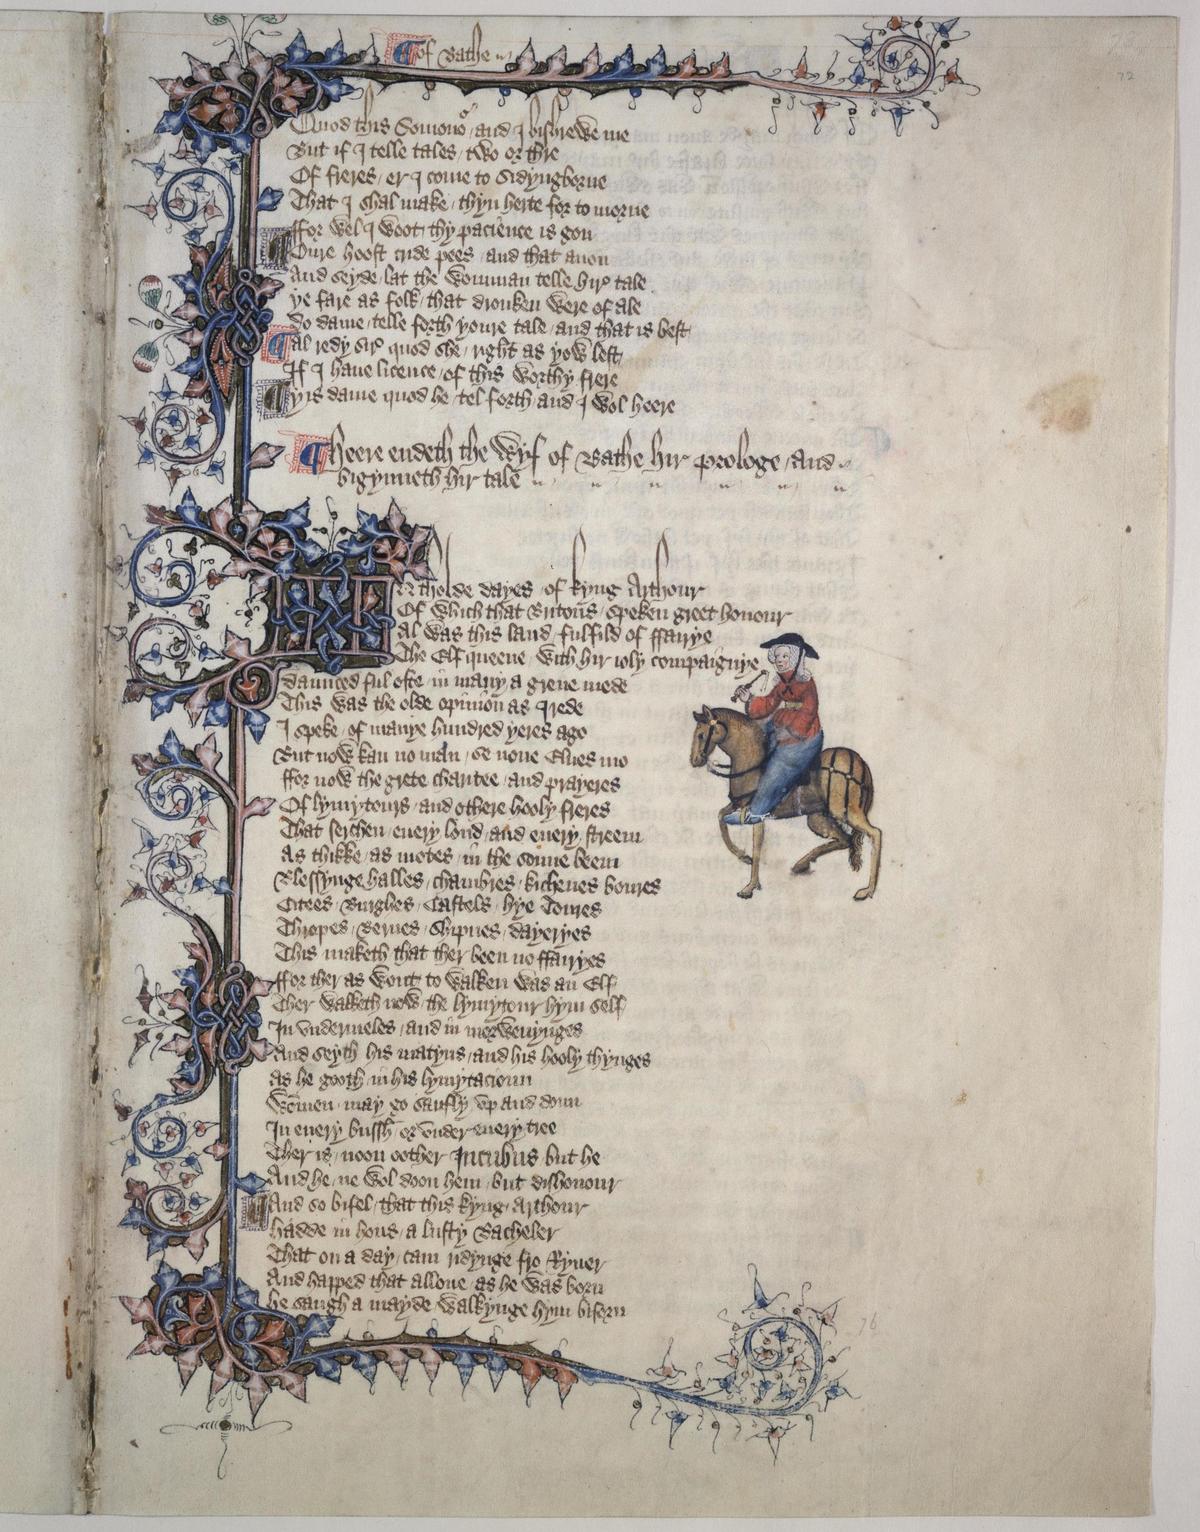 ¶ Of Bathe
Quod this Somonoʳ / and I bishrewe me
But if I telle tales / two or thre
Of freres / er I come to Sidyngborne
That I shal make / thyn herte for to morne
ffor wel I woot thy pacience is gon
Oure hoost cride pees / and that anon
And seyde / lat the womman telle hire tale
ye fare as folk / that dronken were of ale
Do dame / telle forth youre tale / and that is best
Al redy sire quod she / right as yow lest
If I haue licence / of this worthy frere
Yis dame quod he / tel forth and I wol heere
¶ Heere endeth the Wyf of Bathe hir prologe / and
bigynneth hir tale
In tholde dayes / of kyng Arthour
Of which that Britons / speken greet honour
Al was this land / fulfild of ffairye
The Elf queene / with hir ioly compaignye
daunced ful ofte / in many a grene mede
This was the olde opinion as I rede
I speke / of manye hundred yeres ago
But now kan no man / se none Elues mo
ffor now the grete charitee / and prayeres
Of lymytours / and othere hooly freres
That serchen / euery lond / and euery streem
As thikke / as motes / in the sonne beem
Blessynge halles / chambres / kichenes boures
Citees / Burghes / Castels / hye Toures
Thropes / Bernes / Shipnes / dayeryes
This maketh that ther been no ffairyes
ffor ther as wont to walken was an Elf
Ther walketh now / the lymytour hym self
In vndermeles / and in morwenynges
And seyth his matyns / and his hooly thynges
As he gooth / in his lymytacioun
Wommen / may go saufly / vp and doun
In euery bussh / or vnder euery tree
Ther is / noon oother Incubus but he
And he / ne wol doon hem / but dishonour
And so bifel / that this kyng Arthour
hadde in hous / a lusty Bacheler
That on a day / cam ridynge fro Ryuer
And happed that allone / as he was born
he saugh a mayde / walkynge hym biforn
72
76